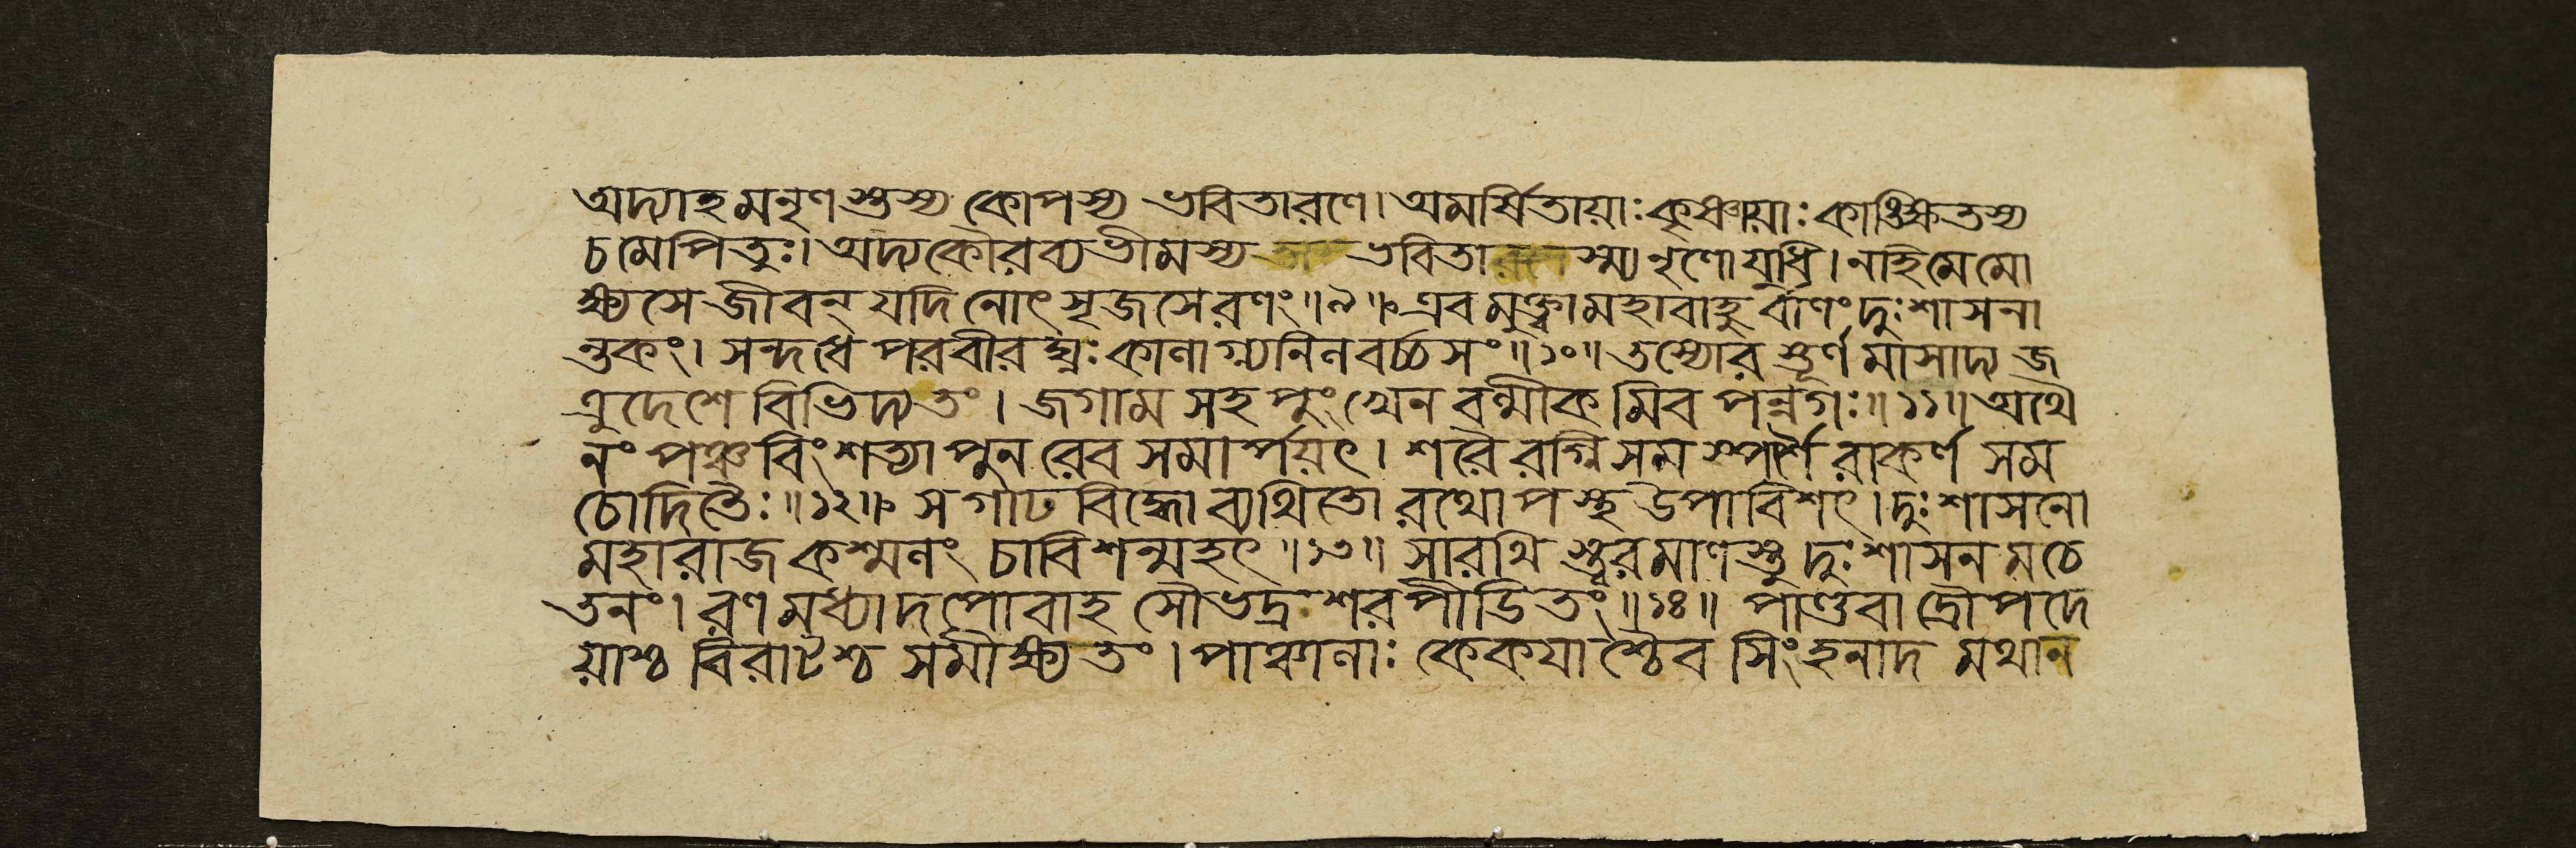 অদ্যাহমনৃণস্তস্য কোপস্য ভবিতারণে। অমর্ষিতায়াঃ কৃষ্ণায়াঃ কাঙ্ক্ষিতস্য
চ মে পিতুঃ। অদ্য কৌরব্য ভীমস্য ভবিতা স্ম্যনৃণো যুধি। নাহি মে মো
ক্ষ্যসে জীবন্ যদি নোৎসৃজসে রণং॥৯॥ এবমুক্ত্বা মহাবাহু র্বাণং দুঃশাসনা
ন্তকং। সন্দধে পরবীরঘ্নঃ কানাগ্ন্যনিনবর্চ্চসং॥১০॥ তস্যোরস্তূর্ণমাসাদ্য জ
ত্রুদেশে বিভিদ্য তং। জগাম সহ পুংখেন বন্মীকমিব পন্নগঃ॥১১॥ অথৈ
নং পঞ্চবিংশত্যা পুনরেব সমার্পয়ৎ। শরৈরগ্নিসমস্পর্শৈরাকর্ণ সম
চোদিতৈঃ॥১২॥ স গাঢবিদ্ধো ব্যথিতো রথোপস্থ উপাবিশৎ। দুঃশাসনো
মহারাজ কশ্মনং চাবিশন্মহৎ॥১৩॥ সারথিস্ত্বরমাণস্তু দুঃশাসনমচে
তনং। রণমধ্যাদপোবাহ সৌভদ্রশরপীডিতং॥১৪॥ পাণ্ডবা দ্রৌপদে
য়াশ্চ বিরাটশ্চ সমীক্ষ্য তং। পাঞ্চানাঃ কেকযাশ্চৈব সিংহনাদমথান